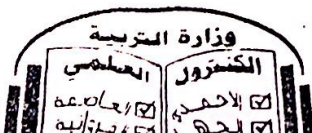 وزارة التربية
الكنترول العلمي
☑ الأحمدي ☑ العاصمة